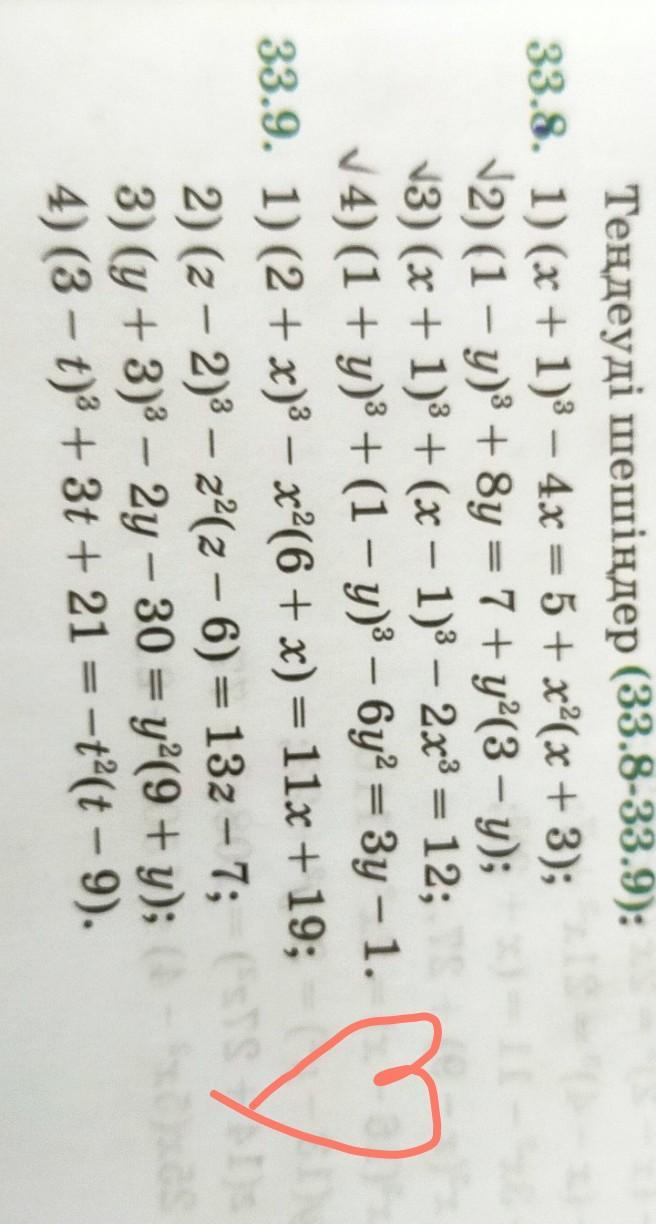 Теңдеуді шешіңдер (33.8-33.9):
33.8. 1) (x + 1)³ − 4x = 5 + x²(x + 3);
√2) (1 − y)³ + 8y = 7 + y²(3 − y);
√3) (x + 1)³ + (x − 1)³ − 2x³ = 12;
√ 4) (1 + y)³ + (1 − y)³ − 6y² = 3y − 1.
33.9. 1) (2 + x)³ − x²(6 + x) = 11x + 19;
2) (z − 2)³ − z²(z − 6) = 13z − 7;
3) (y + 3)³ − 2y − 30 = y²(9 + y);
4) (3 − t)³ + 3t + 21 = −t²(t − 9).